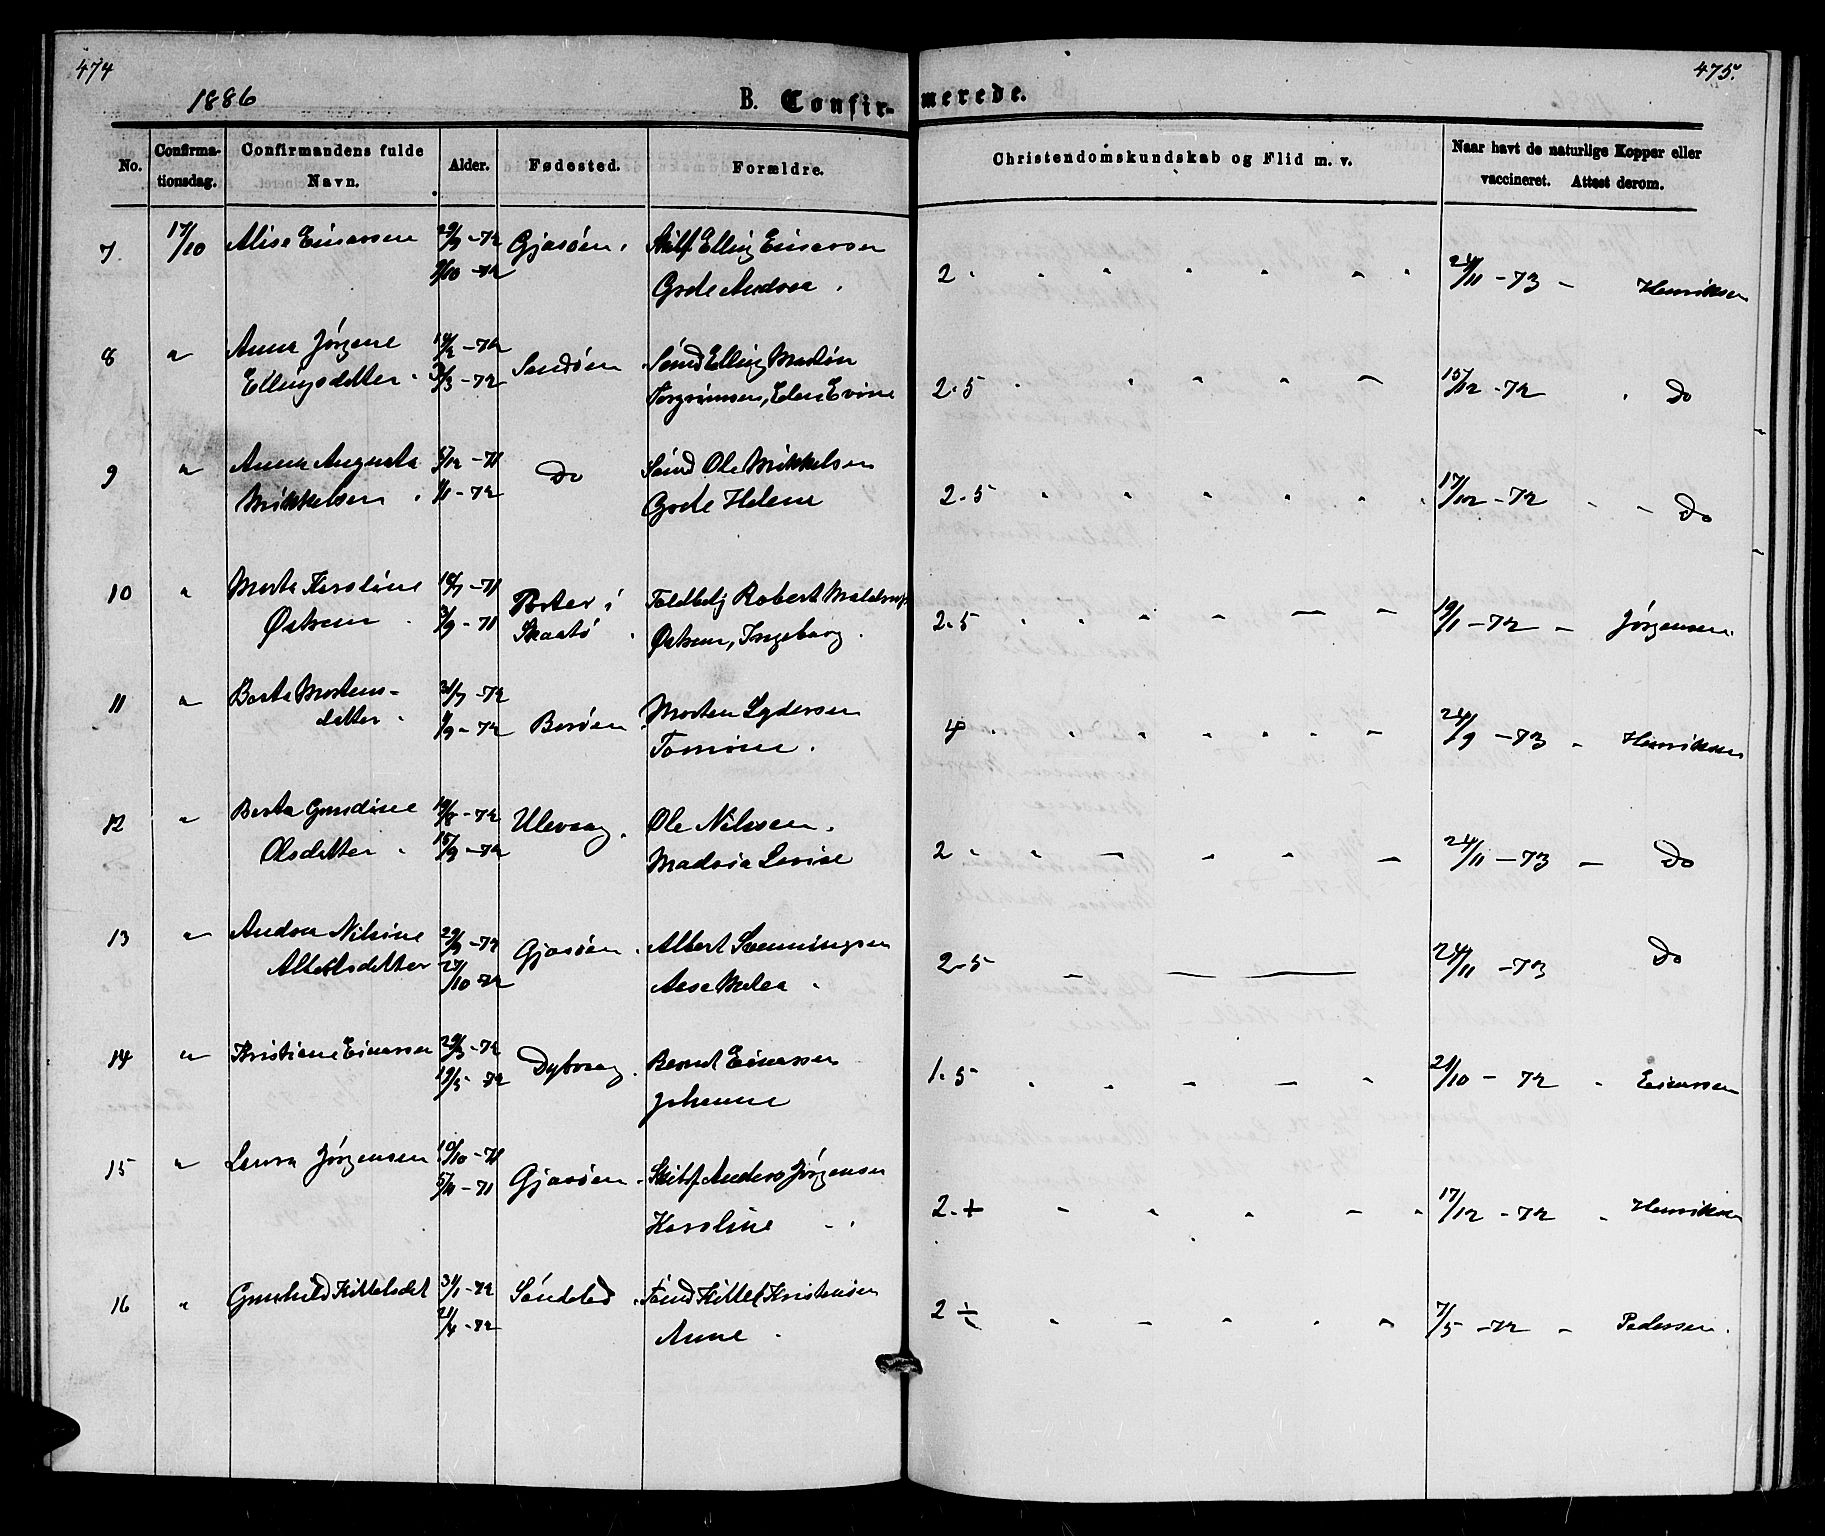 474
475.
1886
B. Confir-
merede.
No.
Confirma-
tionsdag.
Confirmandens fulde
Navn.
Alder.
Fødested.
Forældre.
Christendomskundskab og Flid m. v.
Naar havt de naturlige Kopper eller
vaccineret. Attest derom.
7 17/10 Alise Einarsen 29/9 -72 Gjæsøen. Skibsf. Elling Einarsen 2 24/11 -73 - Henriksen
9/10 -72 Grete Andrea.
8 " Anna Jørgine -72 Sandøen Elling
Ellingsdatter. 3/3 -72 2-5 15/12 -72 Do
9 " Anna Augusta 5/12 -71 Do Ole Mikkelsen
Mikkelsen. 1/1 -72 Grete Helene 2-5 17/12 -72 - Do
10 " Karoline -71 i Robert
Østrem 3/9 -71 Østrem, Ingeborg. 2-5 19/1 -72 - Jørgensen.
11 " Berte Mortens- -72 Borøen Morten Lydersen 4 24/9 -73 Henriksen
datter. 1/9 -72 Tomine.
12 " Berta Gundine 19/8 -72 Ulevaag. Ole Nilssen.
Olsdatter 15/9 -72 Lovise 2 24/11 -73 - Do
13 " Andrea Nilsine 29/9 -72 Gjæsøen. Albert Svenningsen 2-5 24/11 -73 Do
Albertsdatter 27/10 -72
14 " Kristiane Einarsen -72 Dybvaag. Bernt Einarsen 1.5 21/10 - 72 Einarsen
19/5 -72 Johanne
15 " Laura Jørgensen 10/10 -71 Gjæsøen. Skibsf. Anders Jørgensen
5/11 -71 Karoline 2.+ 17/12 -72 Henriksen
16 " Gunhild Kittelsdat 31/1 -72 Søndeled. Kittel Kristensen 2 ÷ 7/5 -72 - Pedersen.
21/4 -72 Anne.